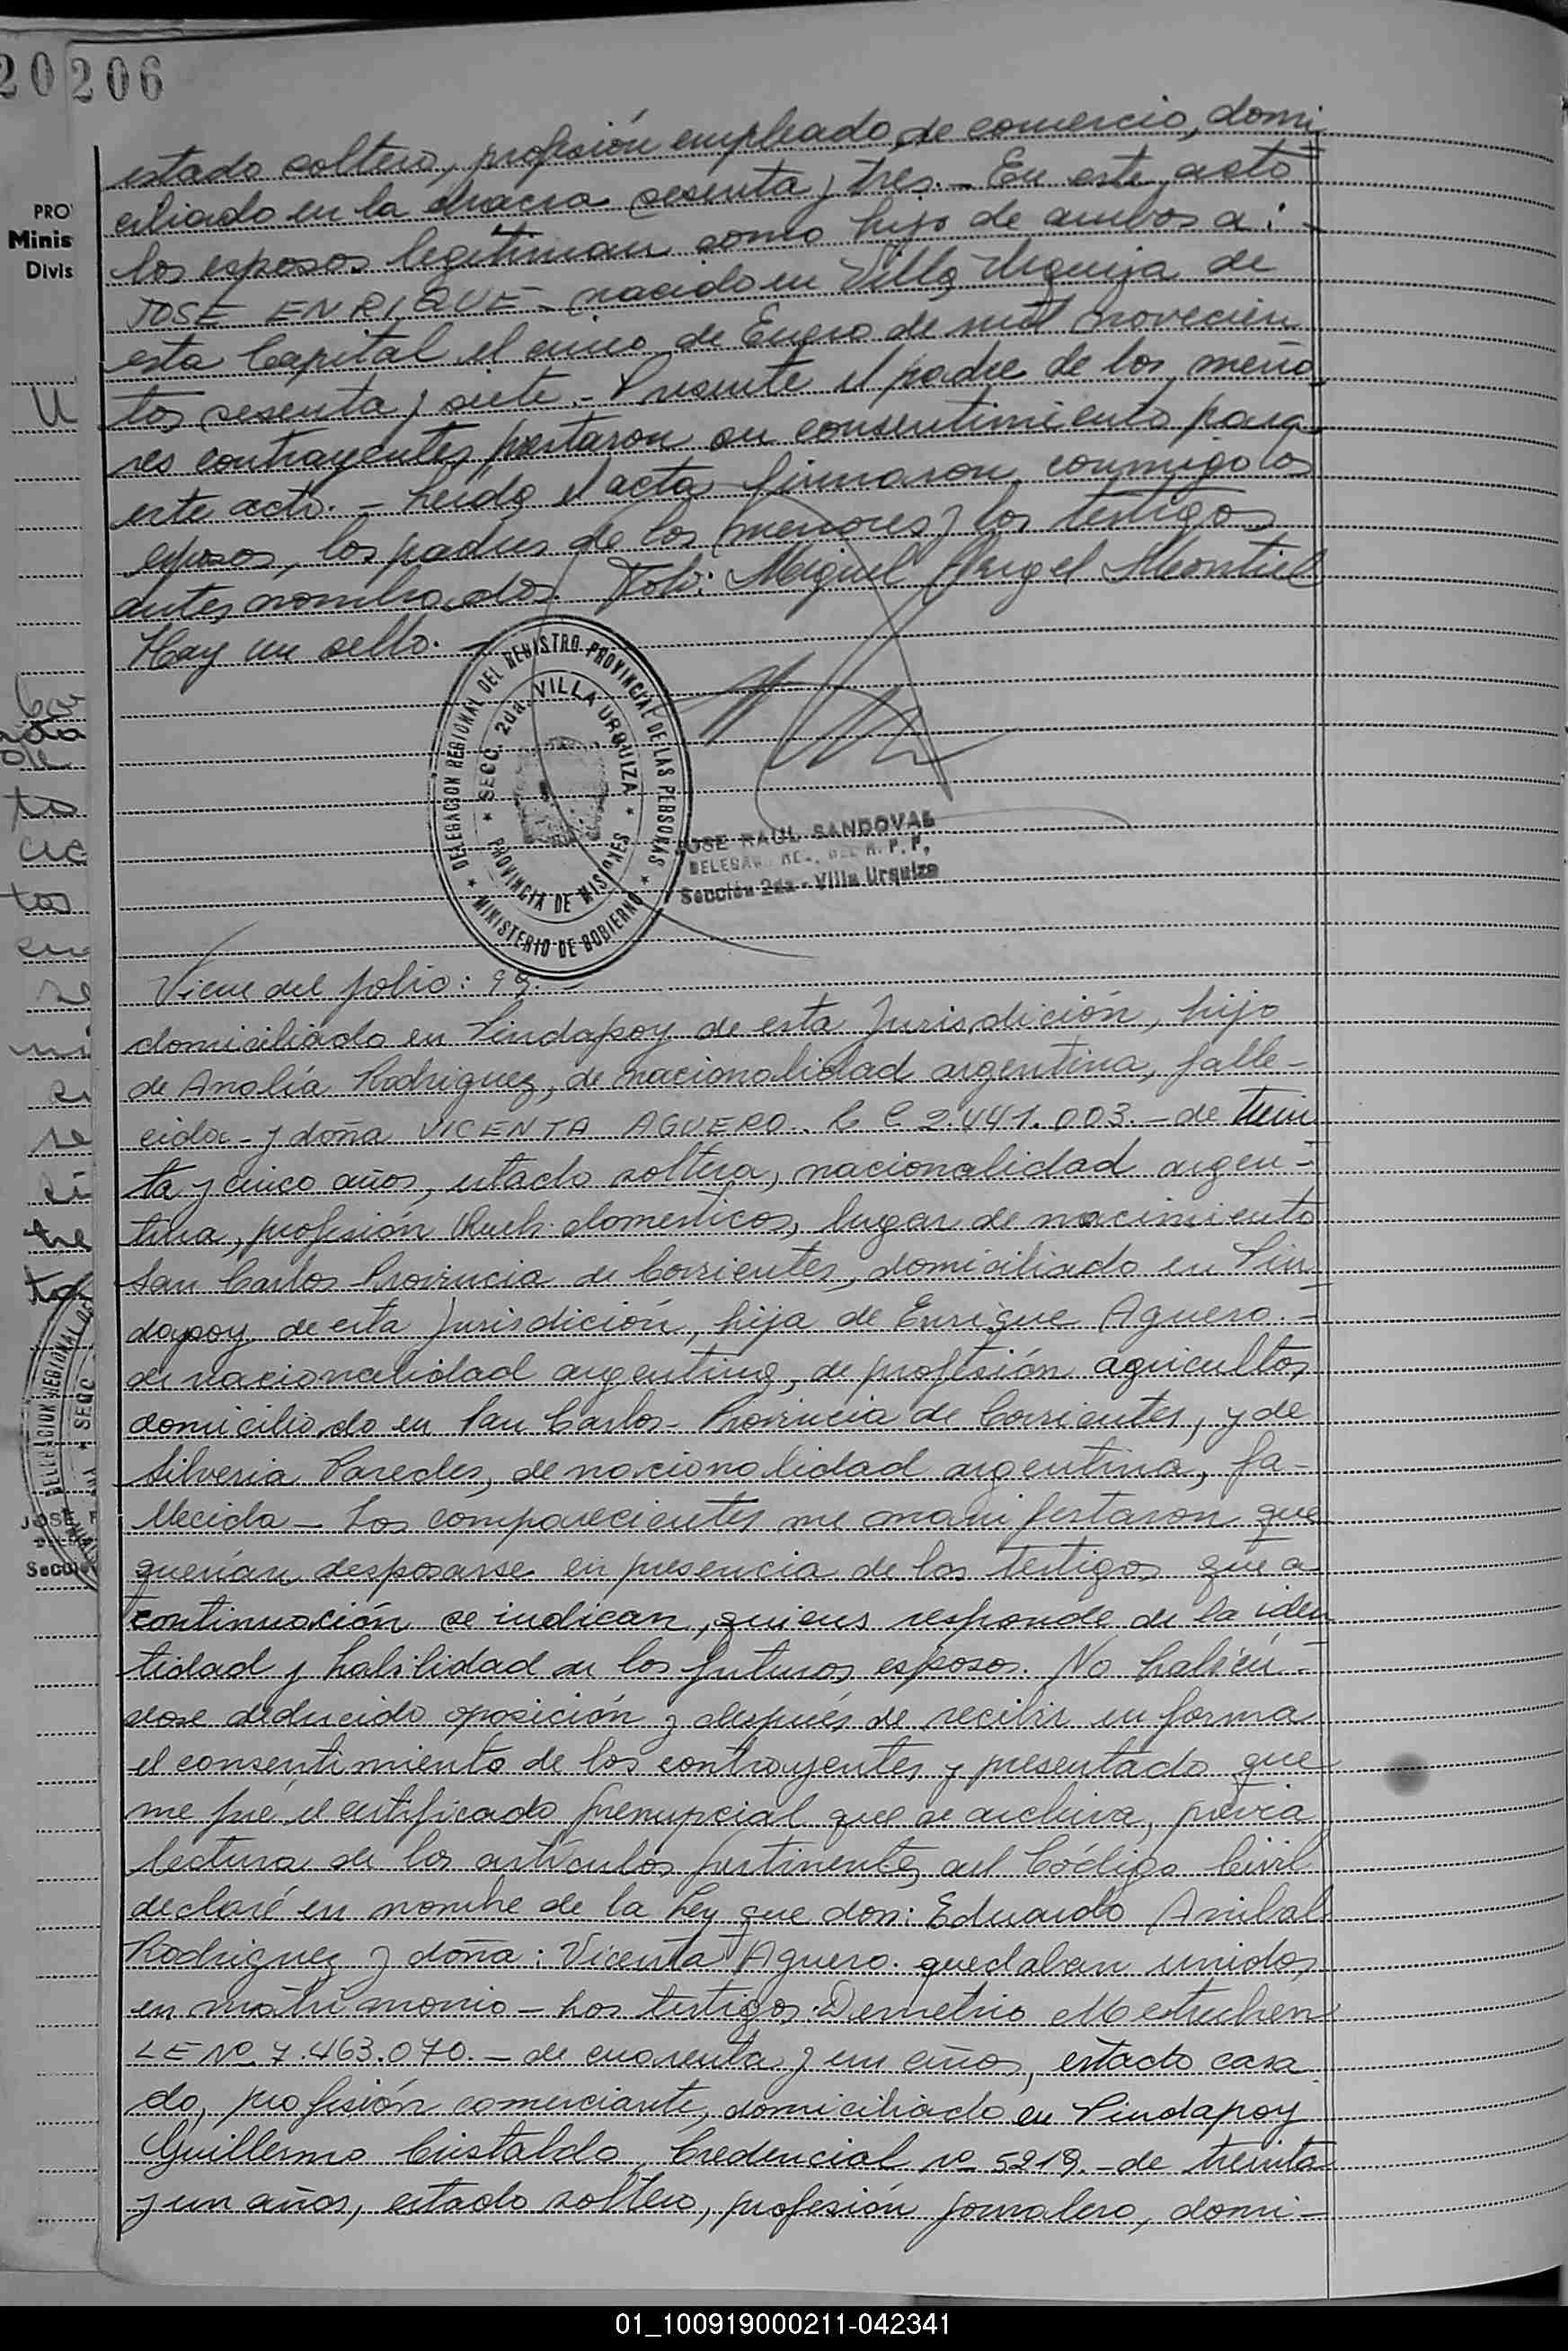 20 206
PRO
Minis
Divis
estado soltero, profesión empleado de comercio, domi
ciliado en la chacra sesenta y tres.- En este acto
los esposos legitiman como hijo de ambos a: -
JOSE ENRIQUE - nacido en Villa Urquiza de
esta Capital el cinco de Enero de mil novecien
tos sesenta y siete.- Presente el padre de los meno
res contrayentes prestaron su consentimiento para
este acto. - Leida el acta firmaron conmigo los
esposos, los padres de los menores y los testigos
antes nombrados. Fdo: Miguel Angel Montiel
Hay un sello. -
DELEGACION REGIONAL DEL REGISTRO PROVINCIAL DE LAS PERSONAS
★ MINISTERIO DE GOBIERNO ★
★ SECC. 2da. VILLA URQUIZA ★
PROVINCIA DE MISIONES
JOSE RAUL SANDOVAL
DELEGAD. REG. DEL R. P. P.
Sección 2da - Villa Urquiza
Viene del folio: 99. -
domiciliado en Pindapoy de esta Jurisdición, hijo
de Analía Rodriguez, de nacionalidad argentina, falle-
cida - y doña VICENTA AGUERO. L C 2.441.003.- de trein
ta y cinco años, estado soltera, nacionalidad argen-
tina, profesión Queh. domesticos, lugar de nacimiento
San Carlos Provincia de Corrientes, domiciliado en Pin
dapoy de esta Jurisdición, hija de Enrique Aguero. -
de nacionalidad argentina, de profesión agricultor,
domiciliado en San Carlos - Provincia de Corrientes, y de
Silveria Paredes, de nacionalidad argentina, fa-
llecida - Los comparecientes me manifestaron que
querían desposarse en presencia de los testigos que a
continuación se indican, quiens responde de la iden
tidad y habilidad de los futuros esposos. No habién-
dose deducido oposición y después de recibir en forma
el consentimiento de los contrayentes y presentado que
me fué el certificado prenupcial que se archiva, previa
lectura de los artículos pertinentes del Código Civil
declaré en nombre de la Ley que don: Eduardo Anibal
Rodriguez y doña: Vicenta Aguero. quedaban unidos
en matrimonio - Los testigos: Demetrio
LE Nº 7.463.070. - de cuarenta y un años, estado casa
do, profesión comerciante, domiciliado en Pindapoy
Guillermo Cristaldo Credencial nº 5219. - de treinta
y un años, estado soltero, profesión jornalero, domi-
01_100919000211-042341